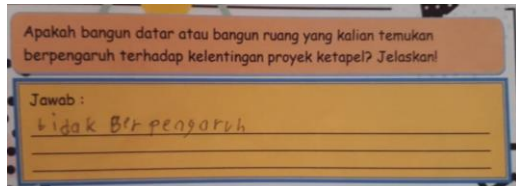 Apakah bangun datar atau bangun ruang yang kalian temukan
berpengaruh terhadap kelentingan proyek ketapel? Jelaskan!
Jawab :
tidak Ber pengaruh